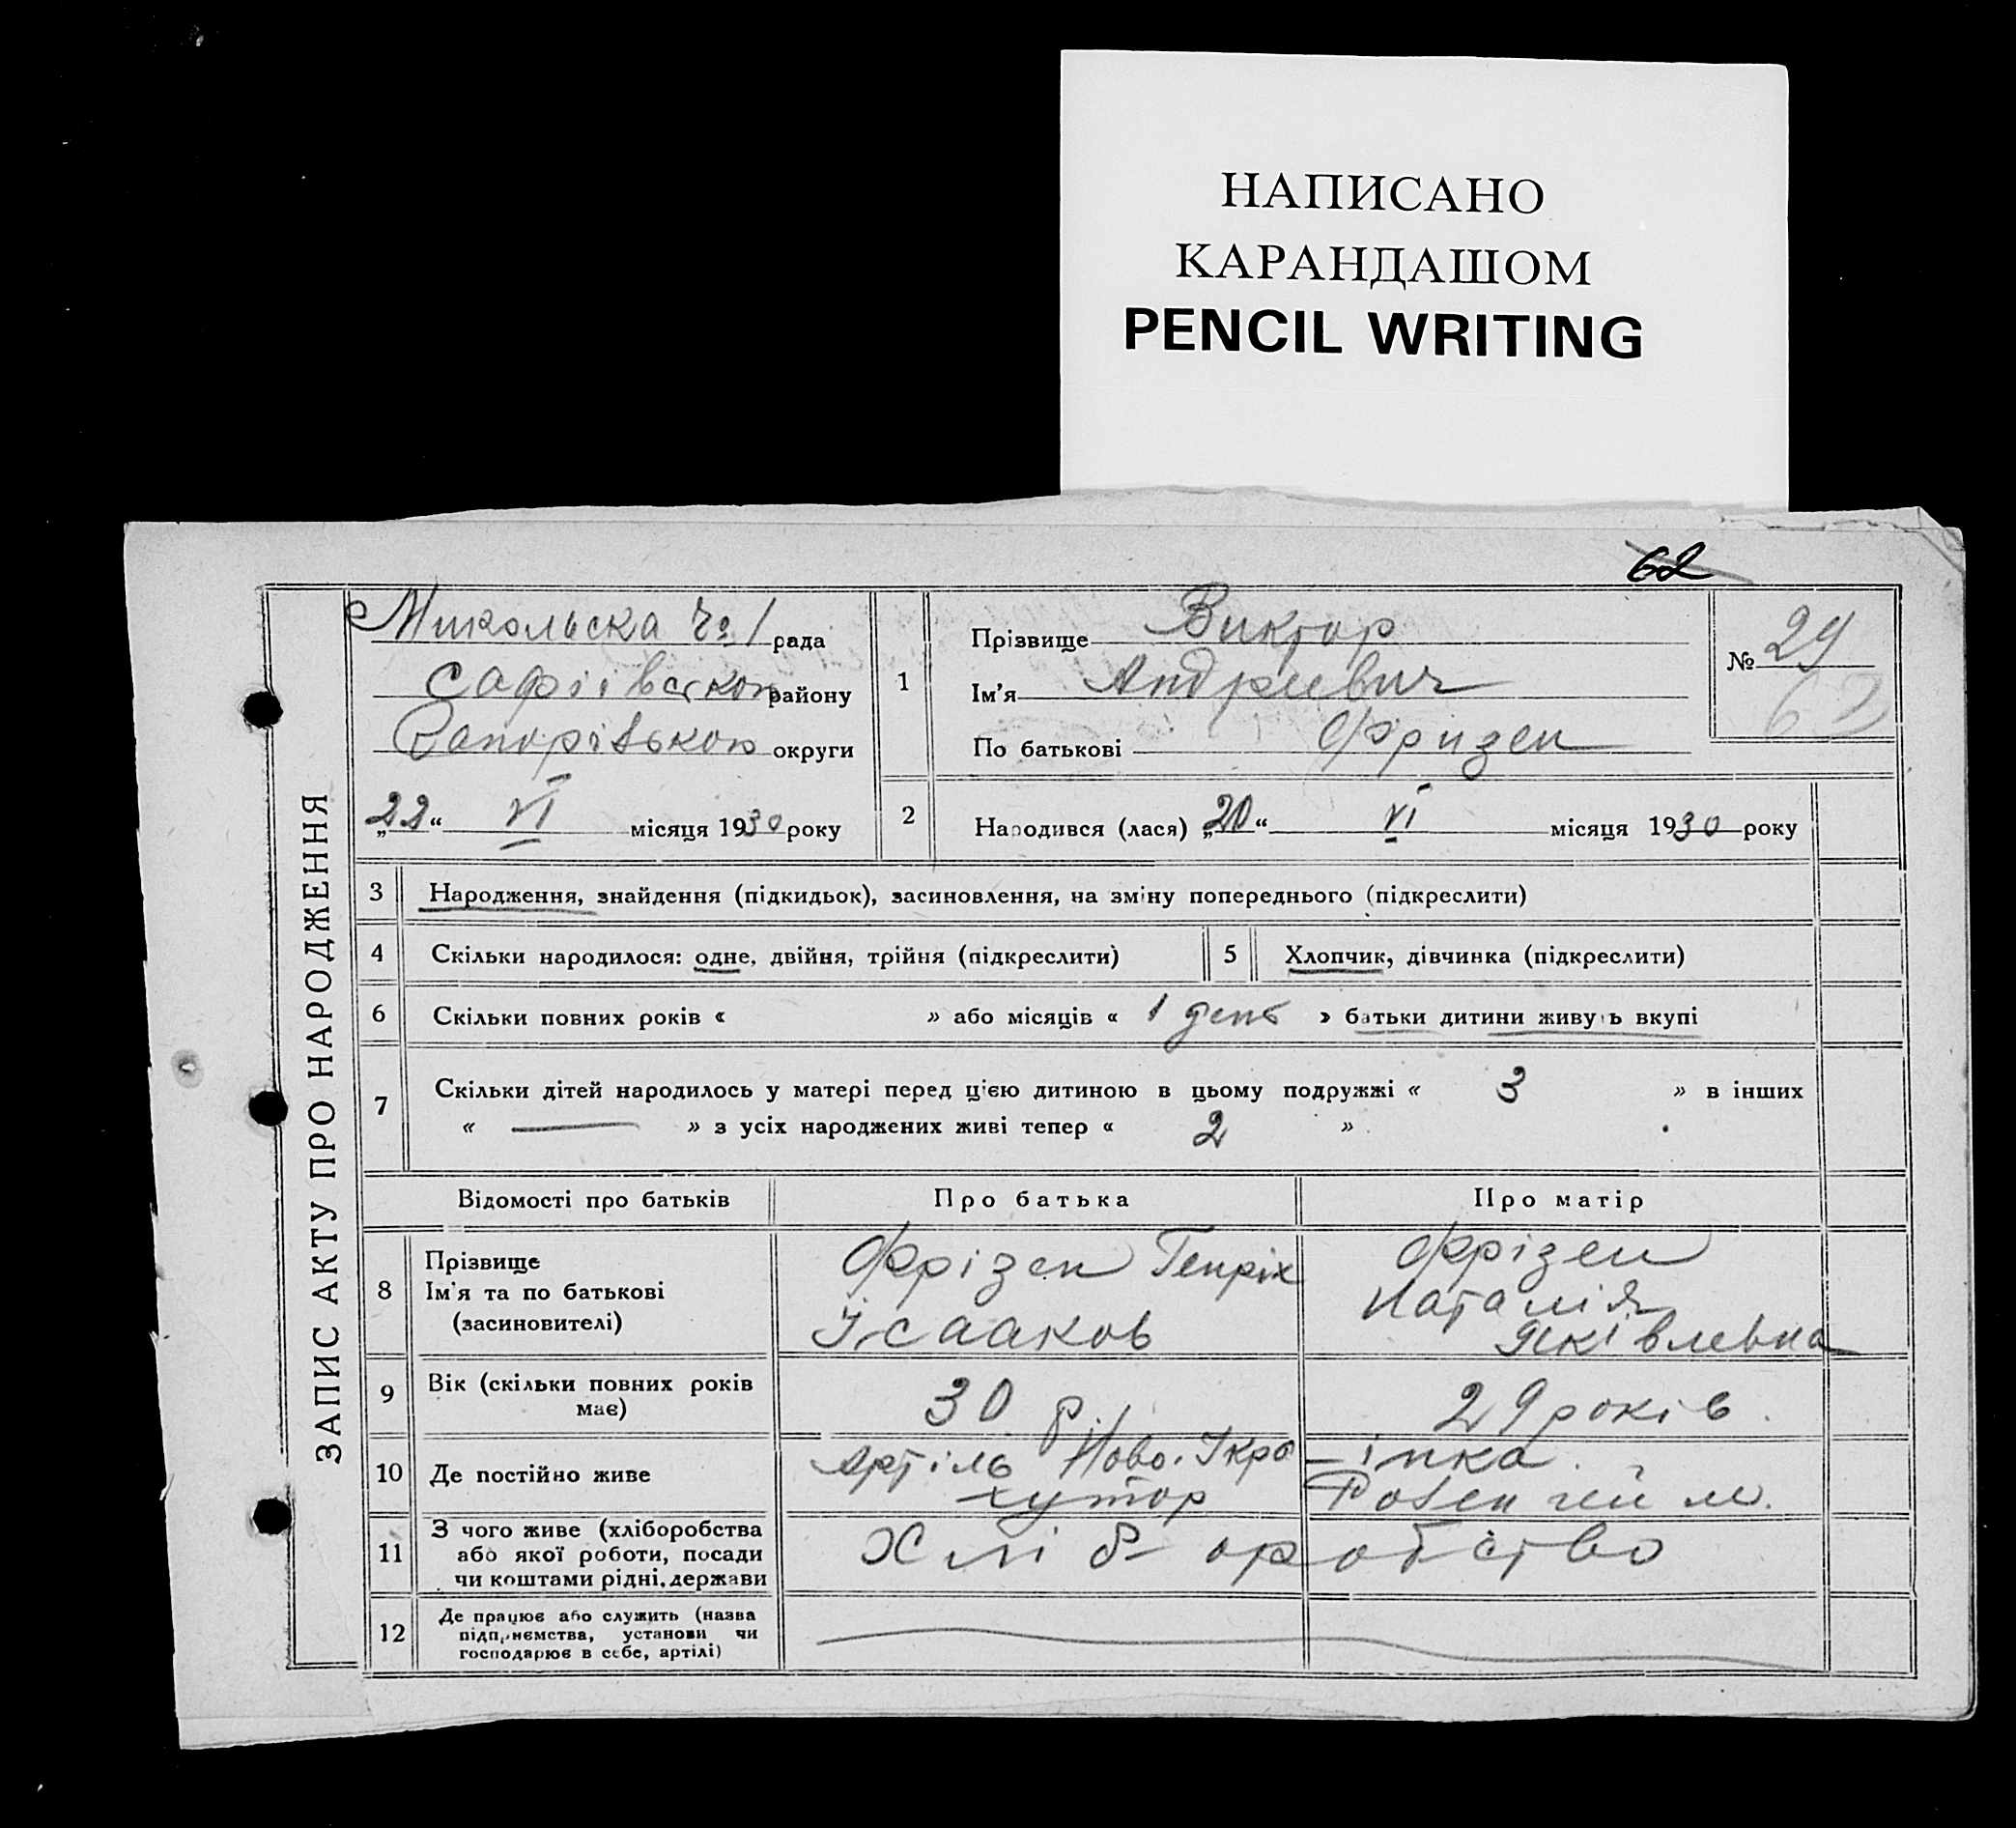 НАПИСАНО
КАРАНДАШОМ
PENCIL WRITING
62
ЗАПИС АКТУ ПРО НАРОДЖЕННЯ
Микольска № 1 рада
Софіівської району
Запорізької округи
„22“ VI місяця 1930 року
1
Прізвище Виктор
Ім'я Андриевич
По батькові Фризен
№ 29
62
2 Народився (лася) „20“ VI місяця 1930 року
3 Народження, знайдення (підкидьок), засиновлення, на зміну попереднього (підкреслити)
4 Скільки народилося: одне, двійня, трійня (підкреслити) 5 Хлопчик, дівчинка (підкреслити)
6 Скільки повних років « » або місяців « 1 день » батьки дитини живуть вкупі
7 Скільки дітей народилось у матері перед цією дитиною в цьому подружжі « 3 » в інших
« — » з усіх народжених живі тепер « 2 »
Відомості про батьків Про батька Про матір
8 Прізвище
Ім'я та по батькові
(засиновителі)
Фрізен Генріх
Ісааков
Фрізен
Наталія
Яківлевна
9 Вік (скільки повних років
має)
30 р.
29 років.
10 Де постійно живе
Артіль Ново-Украінка.
хутор Розенгейм.
11 З чого живе (хліборобства
або якої роботи, посади
чи коштами рідні, держави
Хліборобство
12 Де працює або служить (назва
підприємства, установи чи
господарює в себе, артілі)